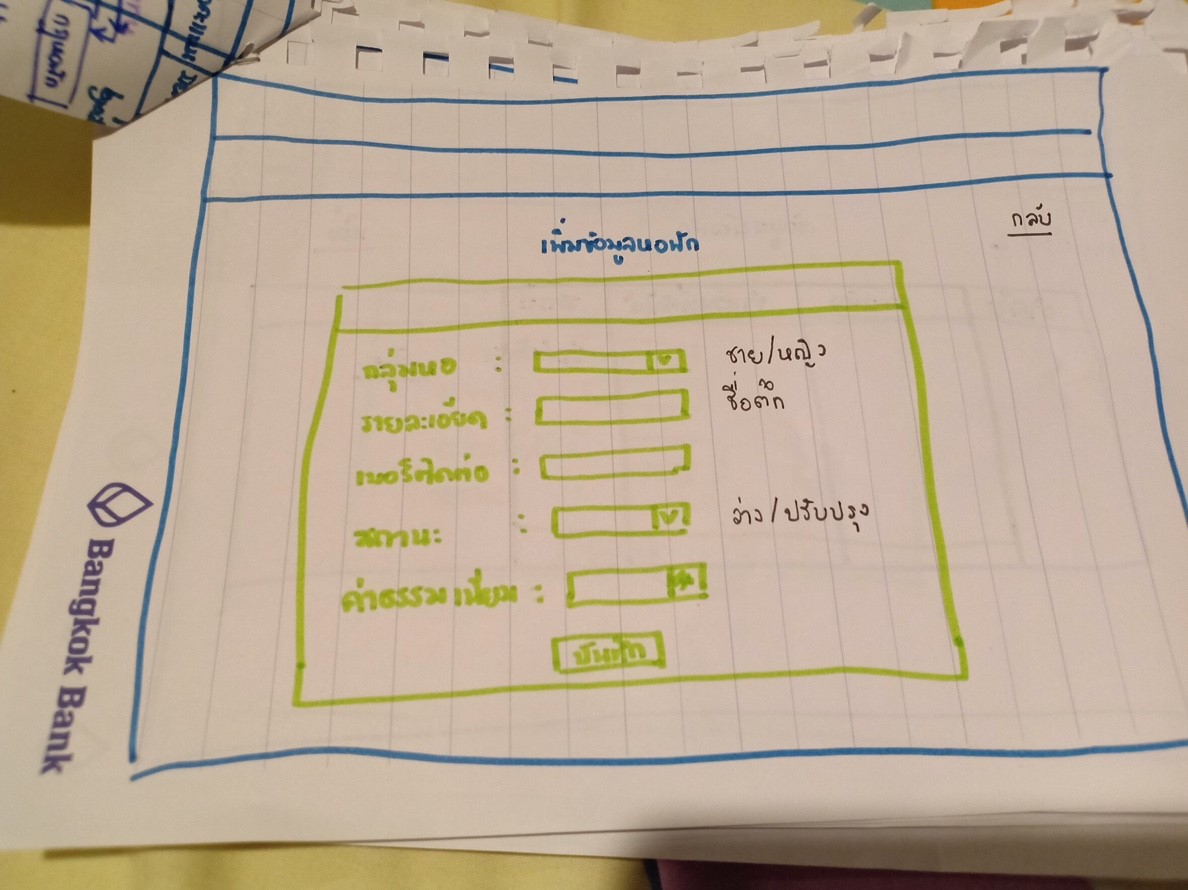 เพิ่มข้อมูลหอพัก
กลับ
กลุ่มหอ : ชาย/หญิง
รายละเอียด : ชื่อตึก
เบอร์ติดต่อ :
สถานะ : ว่าง/ปรับปรุง
ค่าธรรมเนียม :
บันทึก
Bangkok Bank